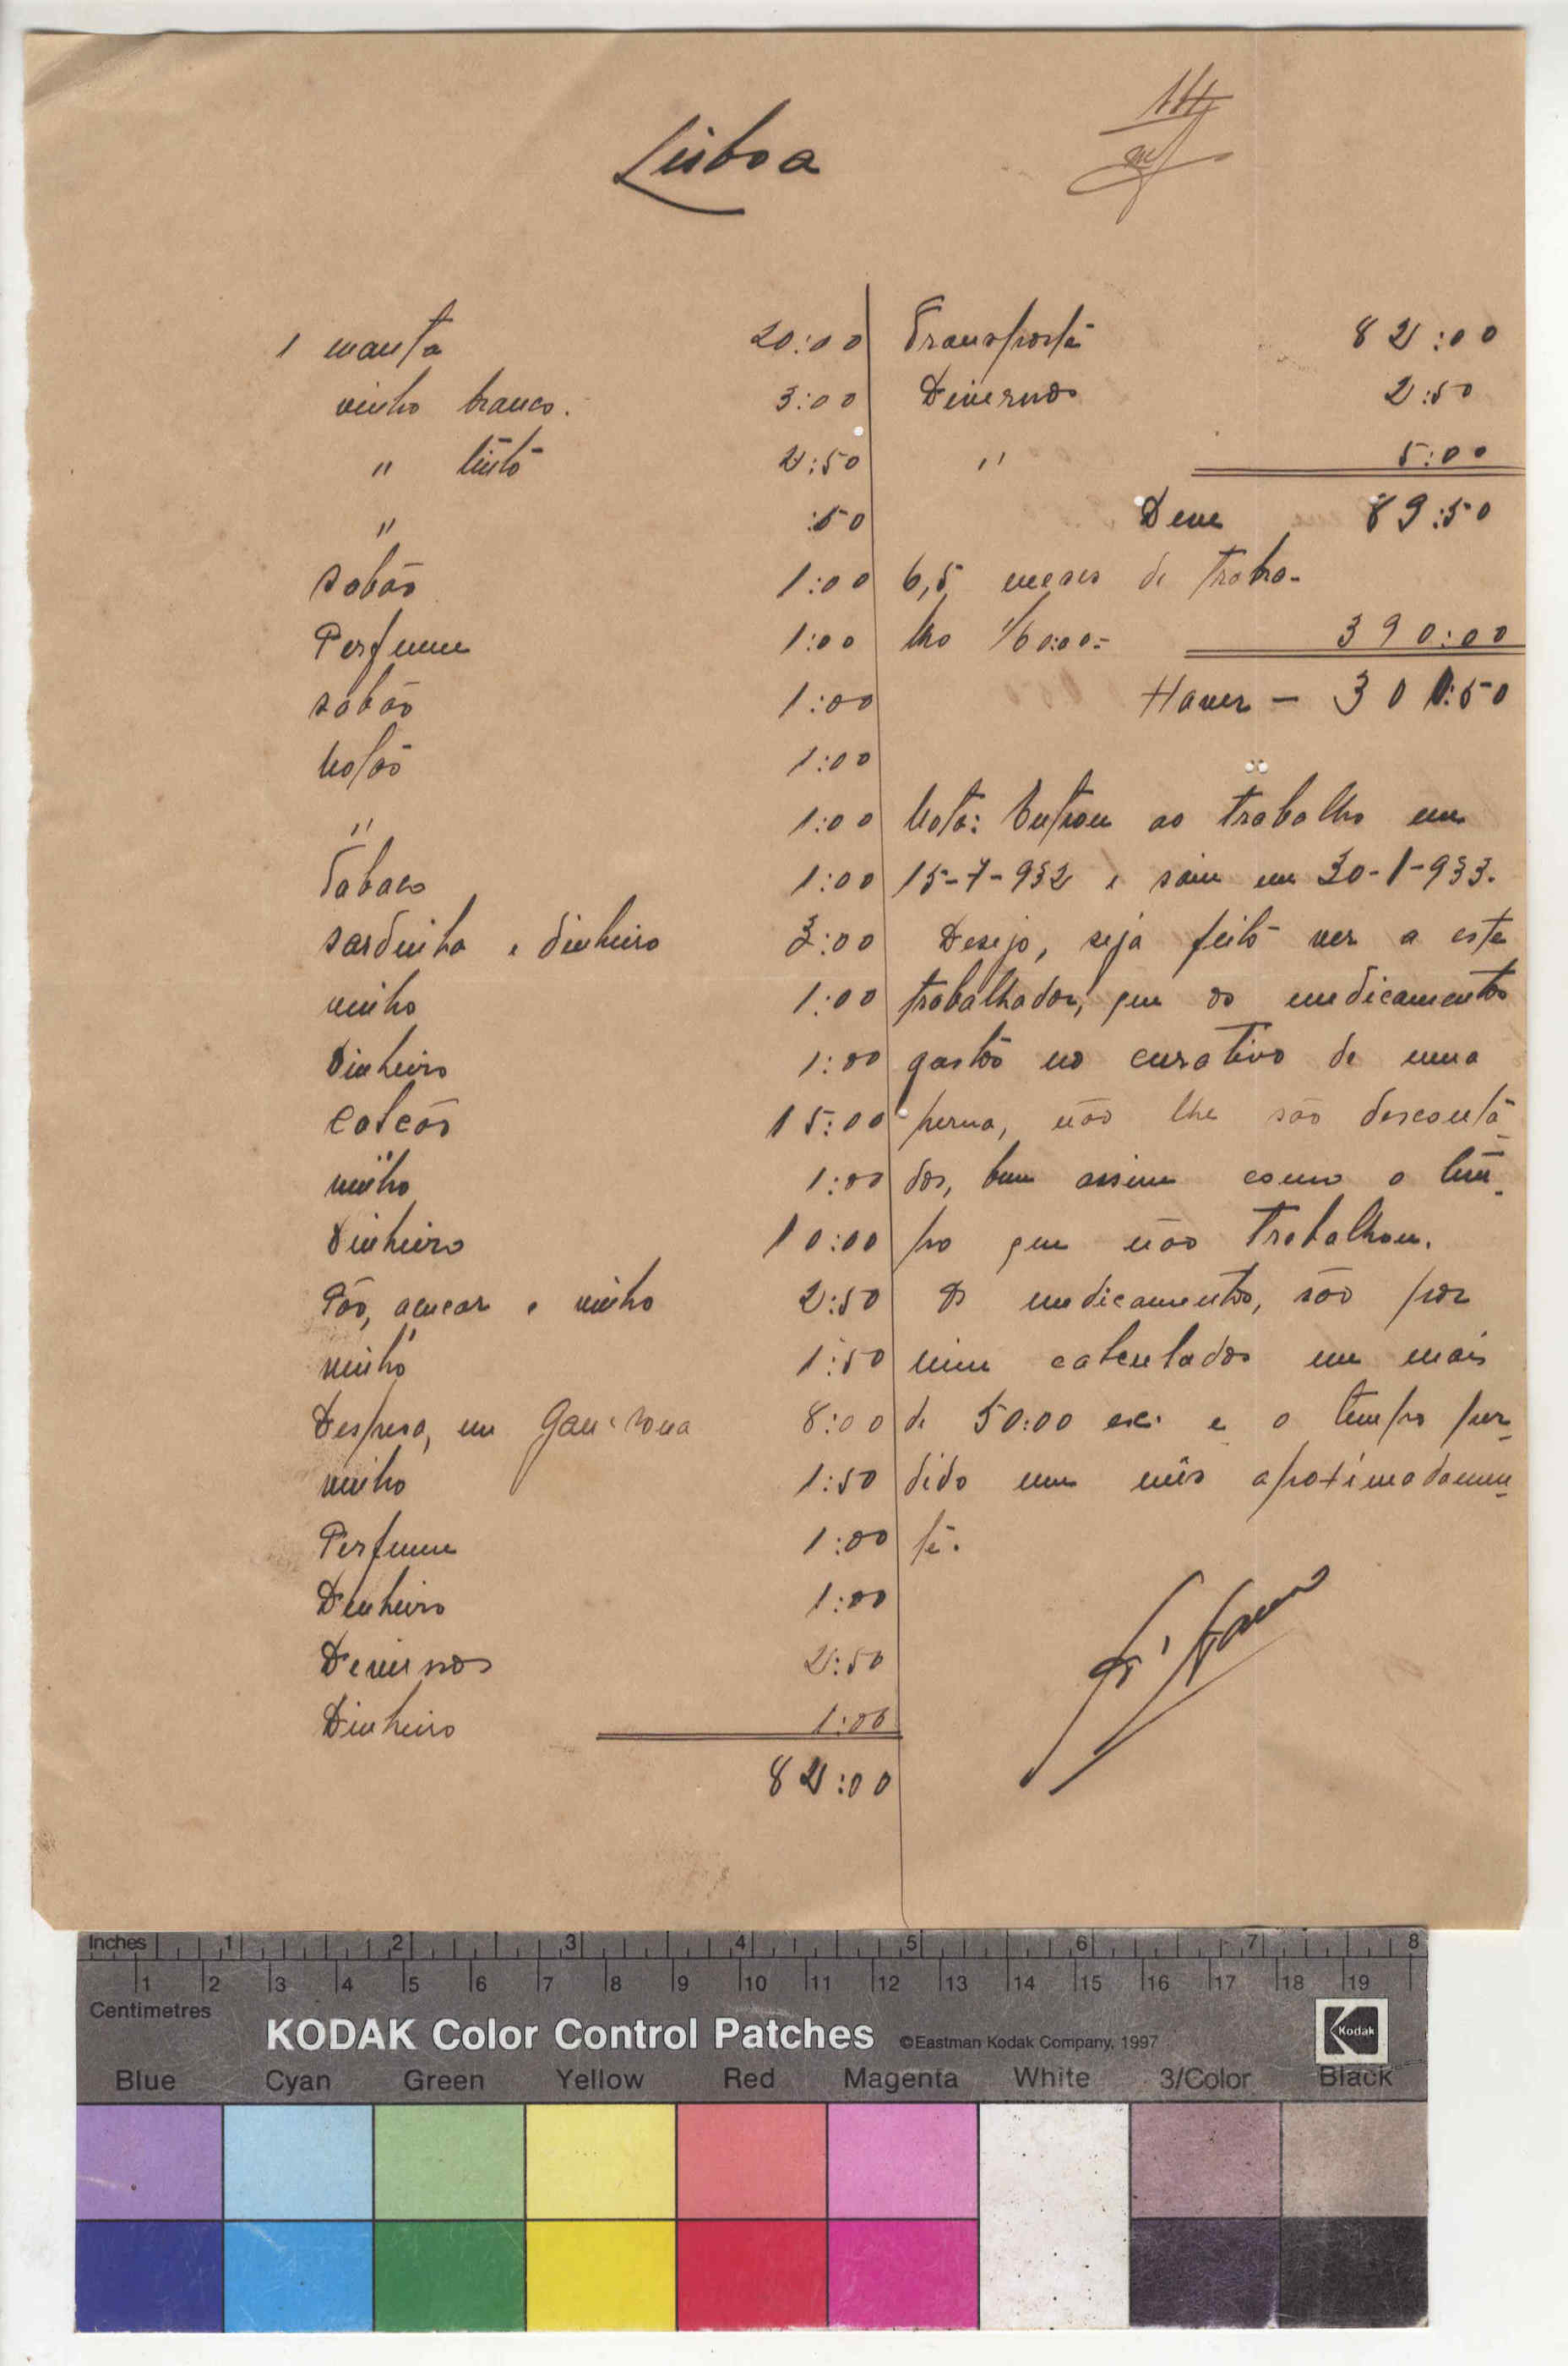 Lisboa
1 manta 20:00
vinho branco. 3:00
" tinto 2:50
" :50
sabão 1:00
Perfume 1:00
sabão 1:00
1:00
" 1:00
Tabaco 1:00
sardinha e dinheiro 3:00
vinho 1:00
Dinheiro 1:00
Calção 15:00
vinho 1:00
Dinheiro 10:00
Pão, acucar e vinho 2:50
vinho 1:50
Despesa, em 8:00
vinho 1:50
Perfume 1:00
Dinheiro 1:00
Diversos 2:50
Dinheiro 1:00
82:00
Transporte 82:00
Diversos 2:50
" 5:00
Deve 89:50
6,5 meses de traba-
lho /60:00= 390:00
Haver - 300:50
Nota: Entrou ao trabalho em
15-7-932 e saiu em 30-1-933.
Desejo, seja feito ver a este
trabalhador, que os medicamentos
gastos no curativo de uma
perna, não lhe são desconta-
dos, bem assim como o tem-
po que não trabalhou.
Os medicamentos, são por
mim calculados em mais
de 50:00 esc. e o tempo per-
dido um mês aproximadamen-
te.
Inches 1 2 3 4 5 6 7 8
1 2 3 4 5 6 7 8 9 10 11 12 13 14 15 16 17 18 19
Centimetres
KODAK Color Control Patches ©Eastman Kodak Company, 1997 Kodak
Blue Cyan Green Yellow Red Magenta White 3/Color Black